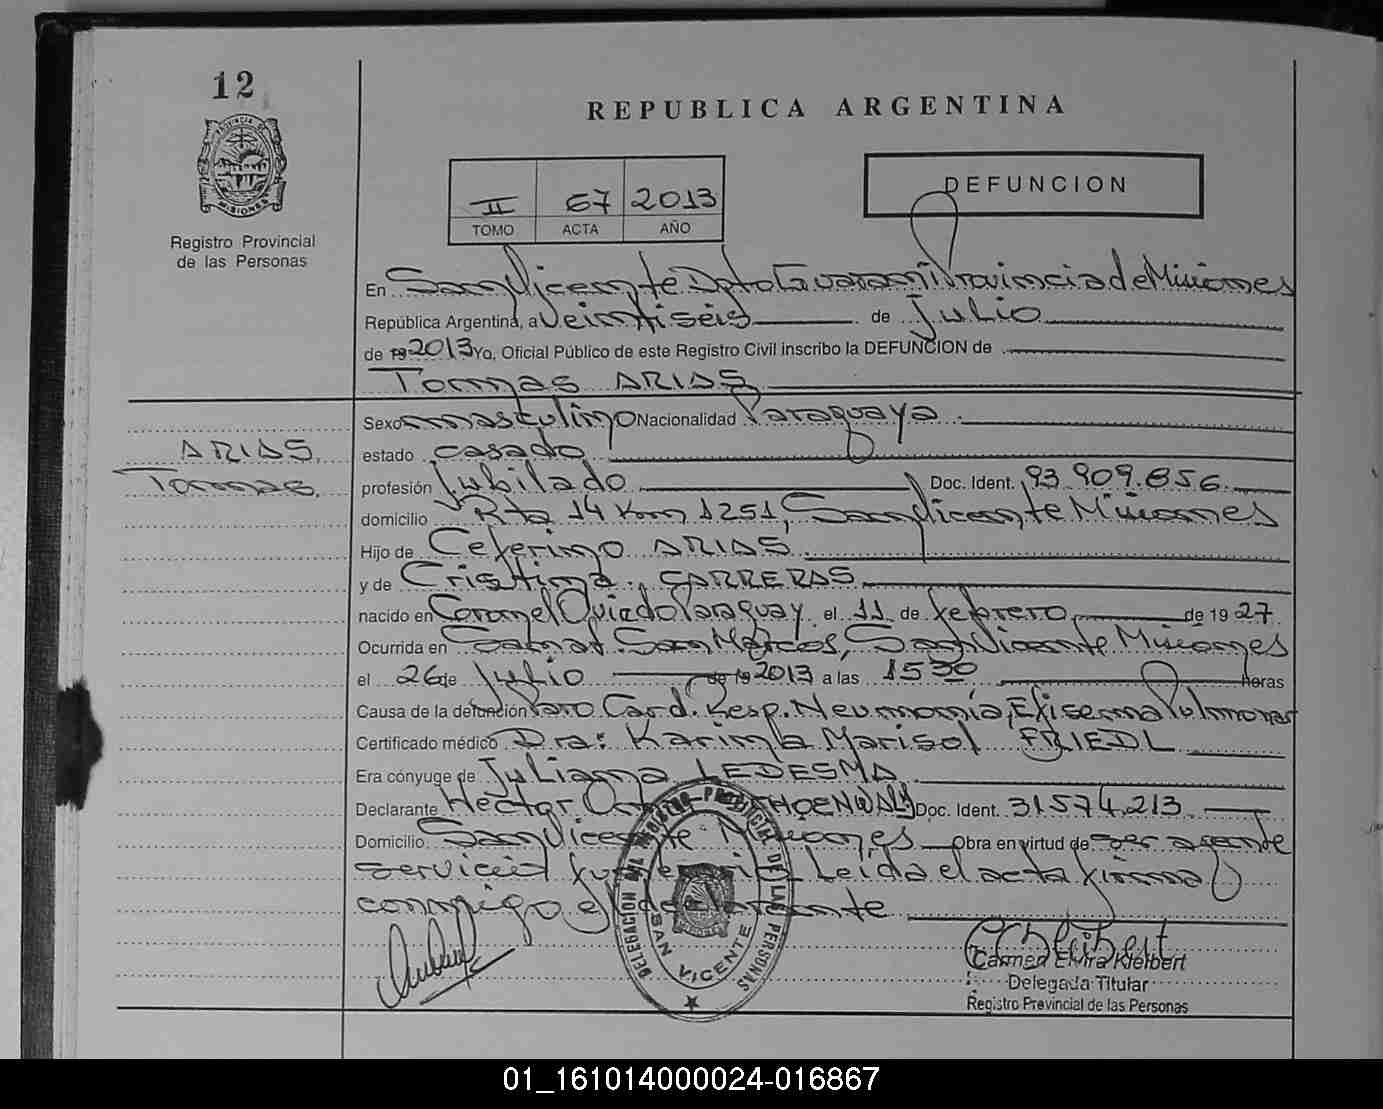 12
PROVINCIA DE
MISIONES
Registro Provincial
de las Personas
REPUBLICA ARGENTINA
II 67 2013
TOMO ACTA AÑO
DEFUNCION
En San Vicente Dpto Guaraní Provincia de Misiones
República Argentina, a Veintiséis de Julio
de 19 2013 Yo, Oficial Público de este Registro Civil inscribo la DEFUNCION de
Tomas ARIAS
ARIAS
Tomas
Sexo masculino Nacionalidad Paraguaya
estado casado
profesión Jubilado Doc. Ident. 93.909.856
domicilio Rta 14 Km 1251, San Vicente Misiones
Hijo de Ceferino ARIAS
y de Cristina CARRERAS
nacido en Coronel Oviedo Paraguay el 11 de febrero de 19 27
Ocurrida en Sanat. San Marcos, San Vicente Misiones
el 26 de Julio de 19 2013 a las 15 30 horas
Causa de la defunción Paro Card. Resp. Neumonía, Efisema Pulmonar
Certificado médico Dra: Karina Marisol FRIEDL
Era cónyuge de Juliana LEDESMA
Declarante Hector Doc. Ident. 31.574.213
Domicilio San Vicente Misiones Obra en virtud de ser agente
servicio Leída el acta firma
conmigo el declarante
DELEGACION DEL REGISTRO PROVINCIAL DE LAS PERSONAS
SAN VICENTE
Carmen Elvira Kleibert
Delegada Titular
Registro Provincial de las Personas
01_161014000024-016867